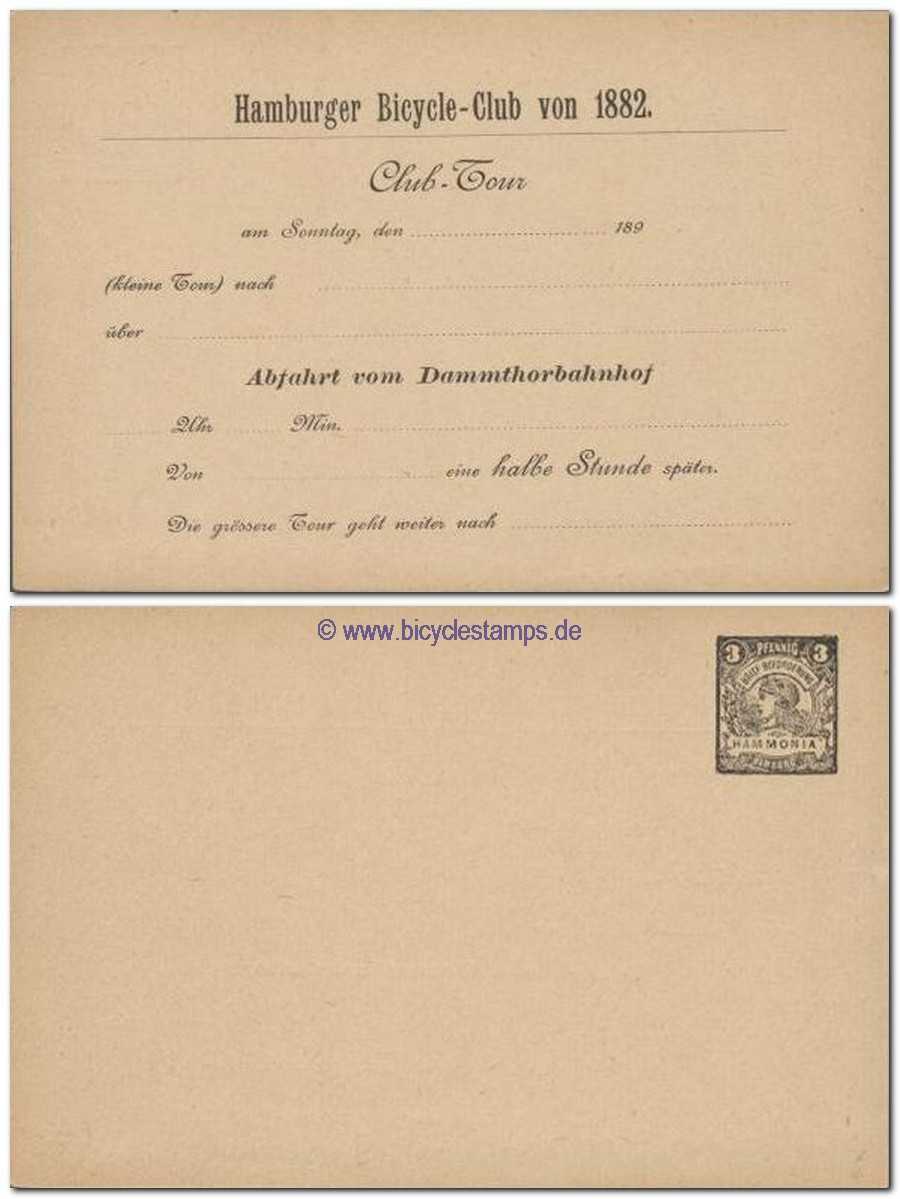 Hamburger Bicycle-Club von 1882.
Club-Tour
am Sonntag, den ................................ 189
(kleine Tour) nach ................................
über ................................
Abfahrt vom Dammthorbahnhof
........ Uhr ........ Min. ................................
Von ................................ eine halbe Stunde später.
Die grössere Tour geht weiter nach ................................
© www.bicyclestamps.de
3 PFENNIG 3
BRIEF-BEFÖRDERUNG
HAMMONIA
HAMBURG